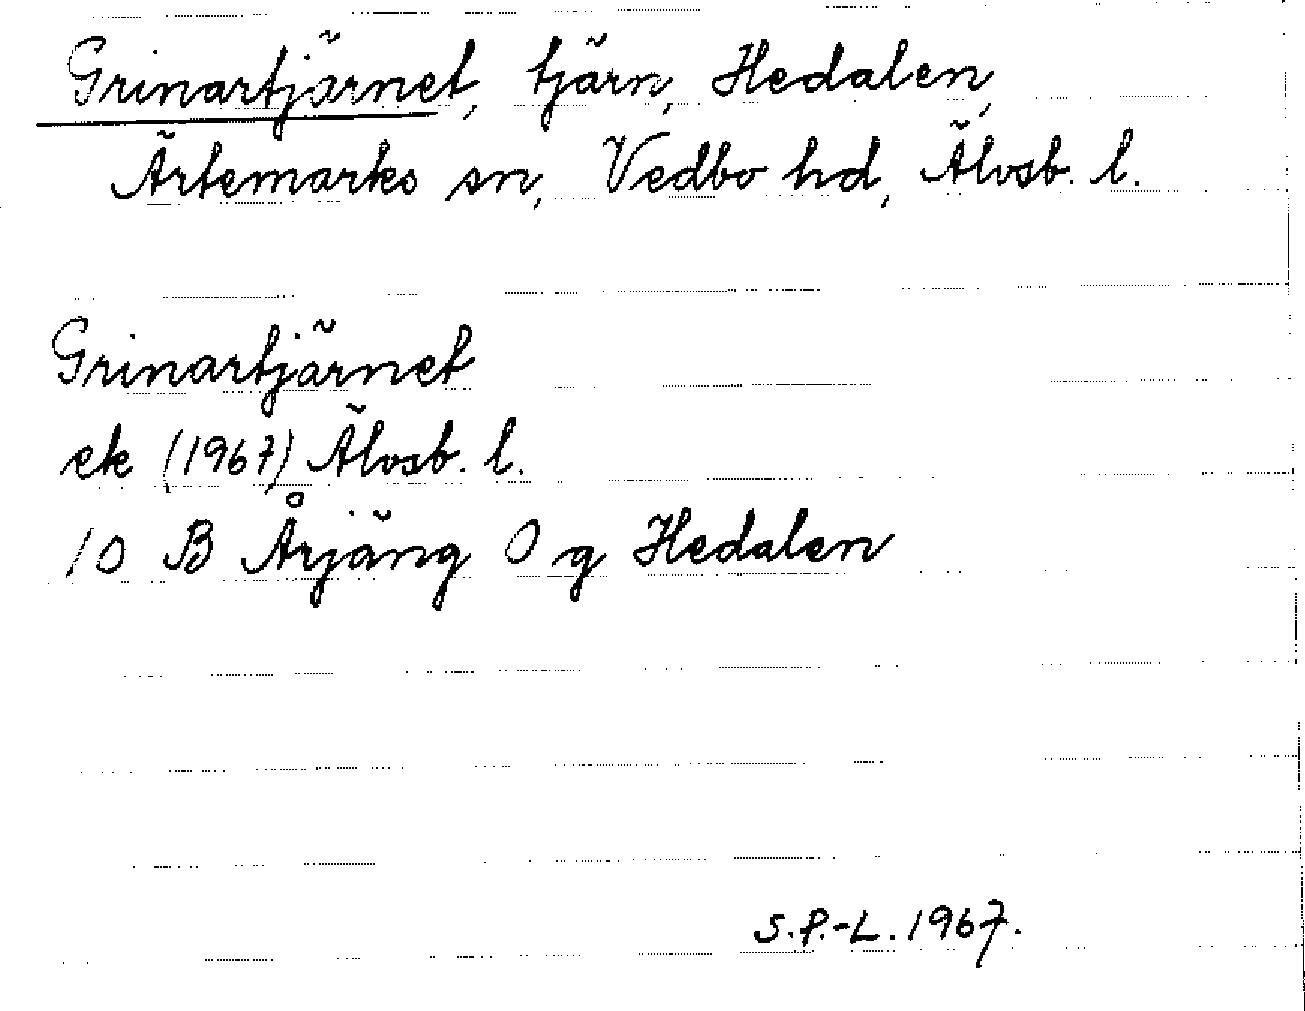 Grinartjärnet, tjärn, Hedalen,
Ärtemarks sn, Vedbo hd, Älvsb. l.
Grinartjärnet
ek (1967) Älvsb. l.
10 B Årjäng 0 g Hedalen
S.P.-L. 1967.